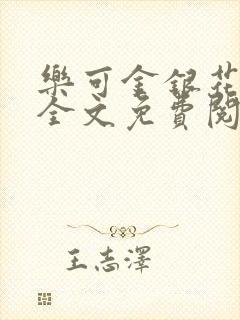 樂可金銀花
全文免費閱
王志澤